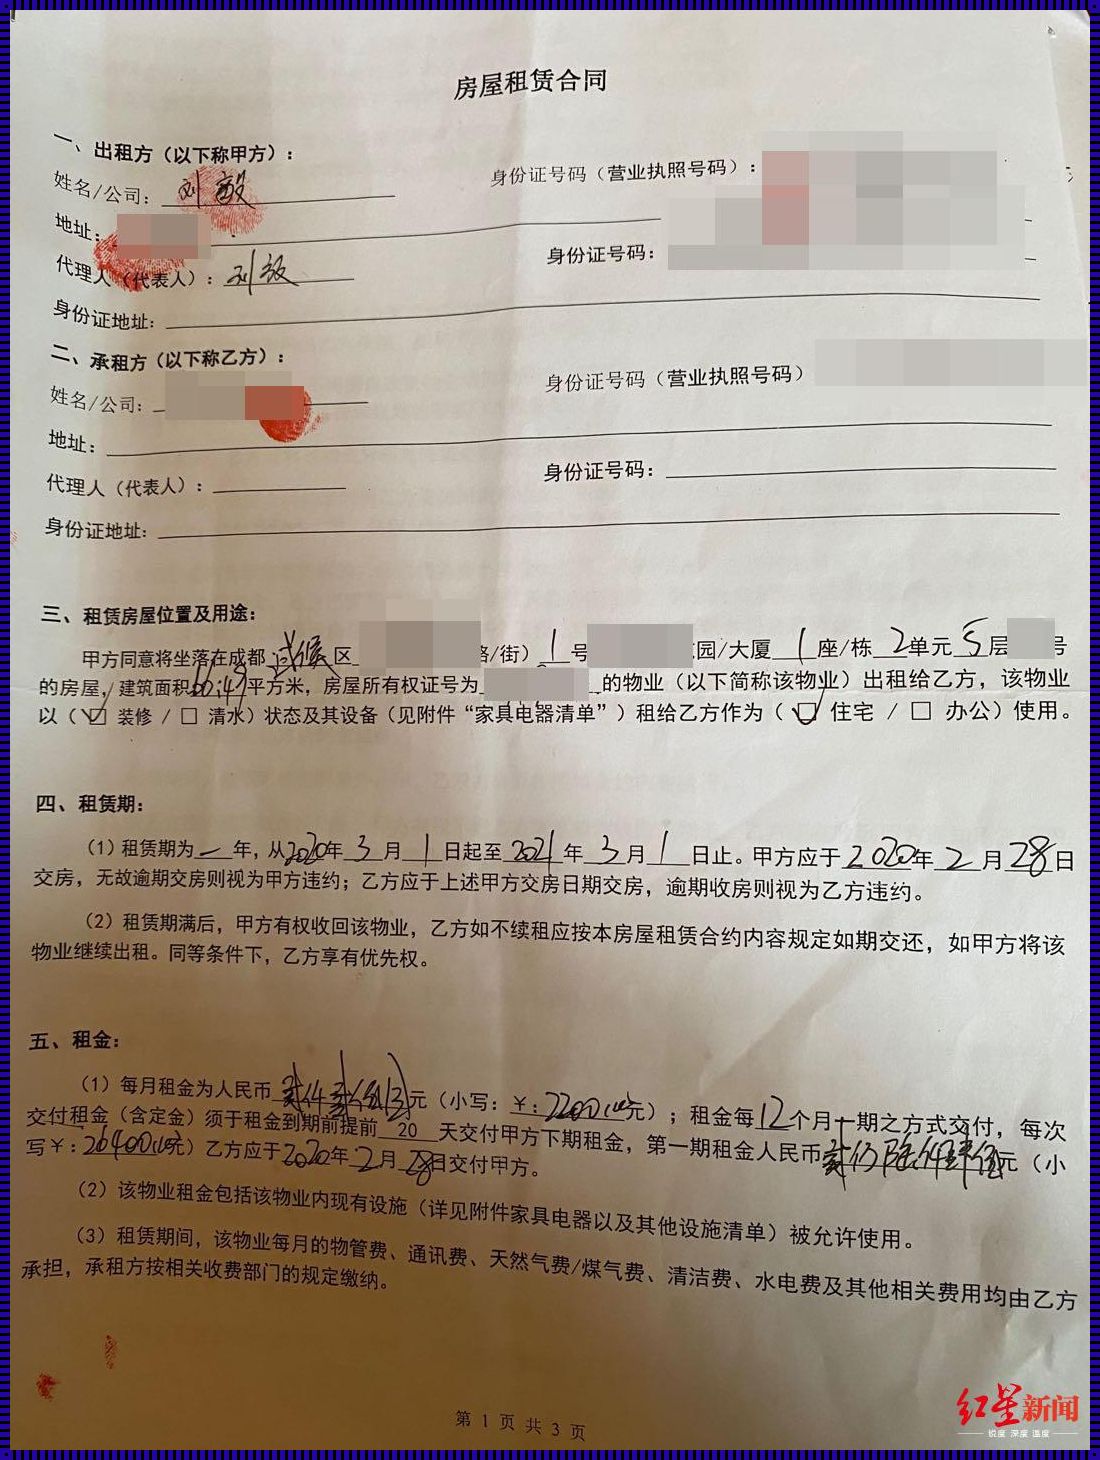 房屋租赁合同
一、出租方（以下称甲方）：
姓名/公司：刘毅 身份证号码（营业执照号码）：
地址：
代理人（代表人）：刘毅 身份证号码：
身份证地址：
二、承租方（以下称乙方）：
姓名/公司： 身份证号码（营业执照号码）
地址：
代理人（代表人）： 身份证号码：
身份证地址：
三、租赁房屋位置及用途：
甲方同意将坐落在成都武候区 路/街）1号 园/大厦1座/栋2单元5层 号
的房屋，建筑面积66.49平方米，房屋所有权证号为 的物业（以下简称该物业）出租给乙方，该物业
以（☑ 装修 / □ 清水）状态及其设备（见附件“家具电器清单”）租给乙方作为（☑ 住宅 / □ 办公）使用。
四、租赁期：
（1）租赁期为一年，从2020年3月1日起至2021年3月1日止。甲方应于2020年2月28日
交房，无故逾期交房则视为甲方违约；乙方应于上述甲方交房日期交房，逾期收房则视为乙方违约。
（2）租赁期满后，甲方有权收回该物业，乙方如不续租应按本房屋租赁合约内容规定如期交还，如甲方将该
物业继续出租。同等条件下，乙方享有优先权。
五、租金：
（1）每月租金为人民币贰仟贰佰圆元（小写：￥：2200元）；租金每12个月一期之方式交付，每次
交付租金（含定金）须于租金到期前提前20天交付甲方下期租金，第一期租金人民币贰万陆仟肆佰元（小
写￥：26400元）乙方应于2020年2月28日交付甲方。
（2）该物业租金包括该物业内现有设施（详见附件家具电器以及其他设施清单）被允许使用。
（3）租赁期间，该物业每月的物管费、通讯费、天然气费/煤气费、清洁费、水电费及其他相关费用均由乙方
承担，承租方按相关收费部门的规定缴纳。
第 1 页 共 3 页
红星新闻
锐度 深度 温度